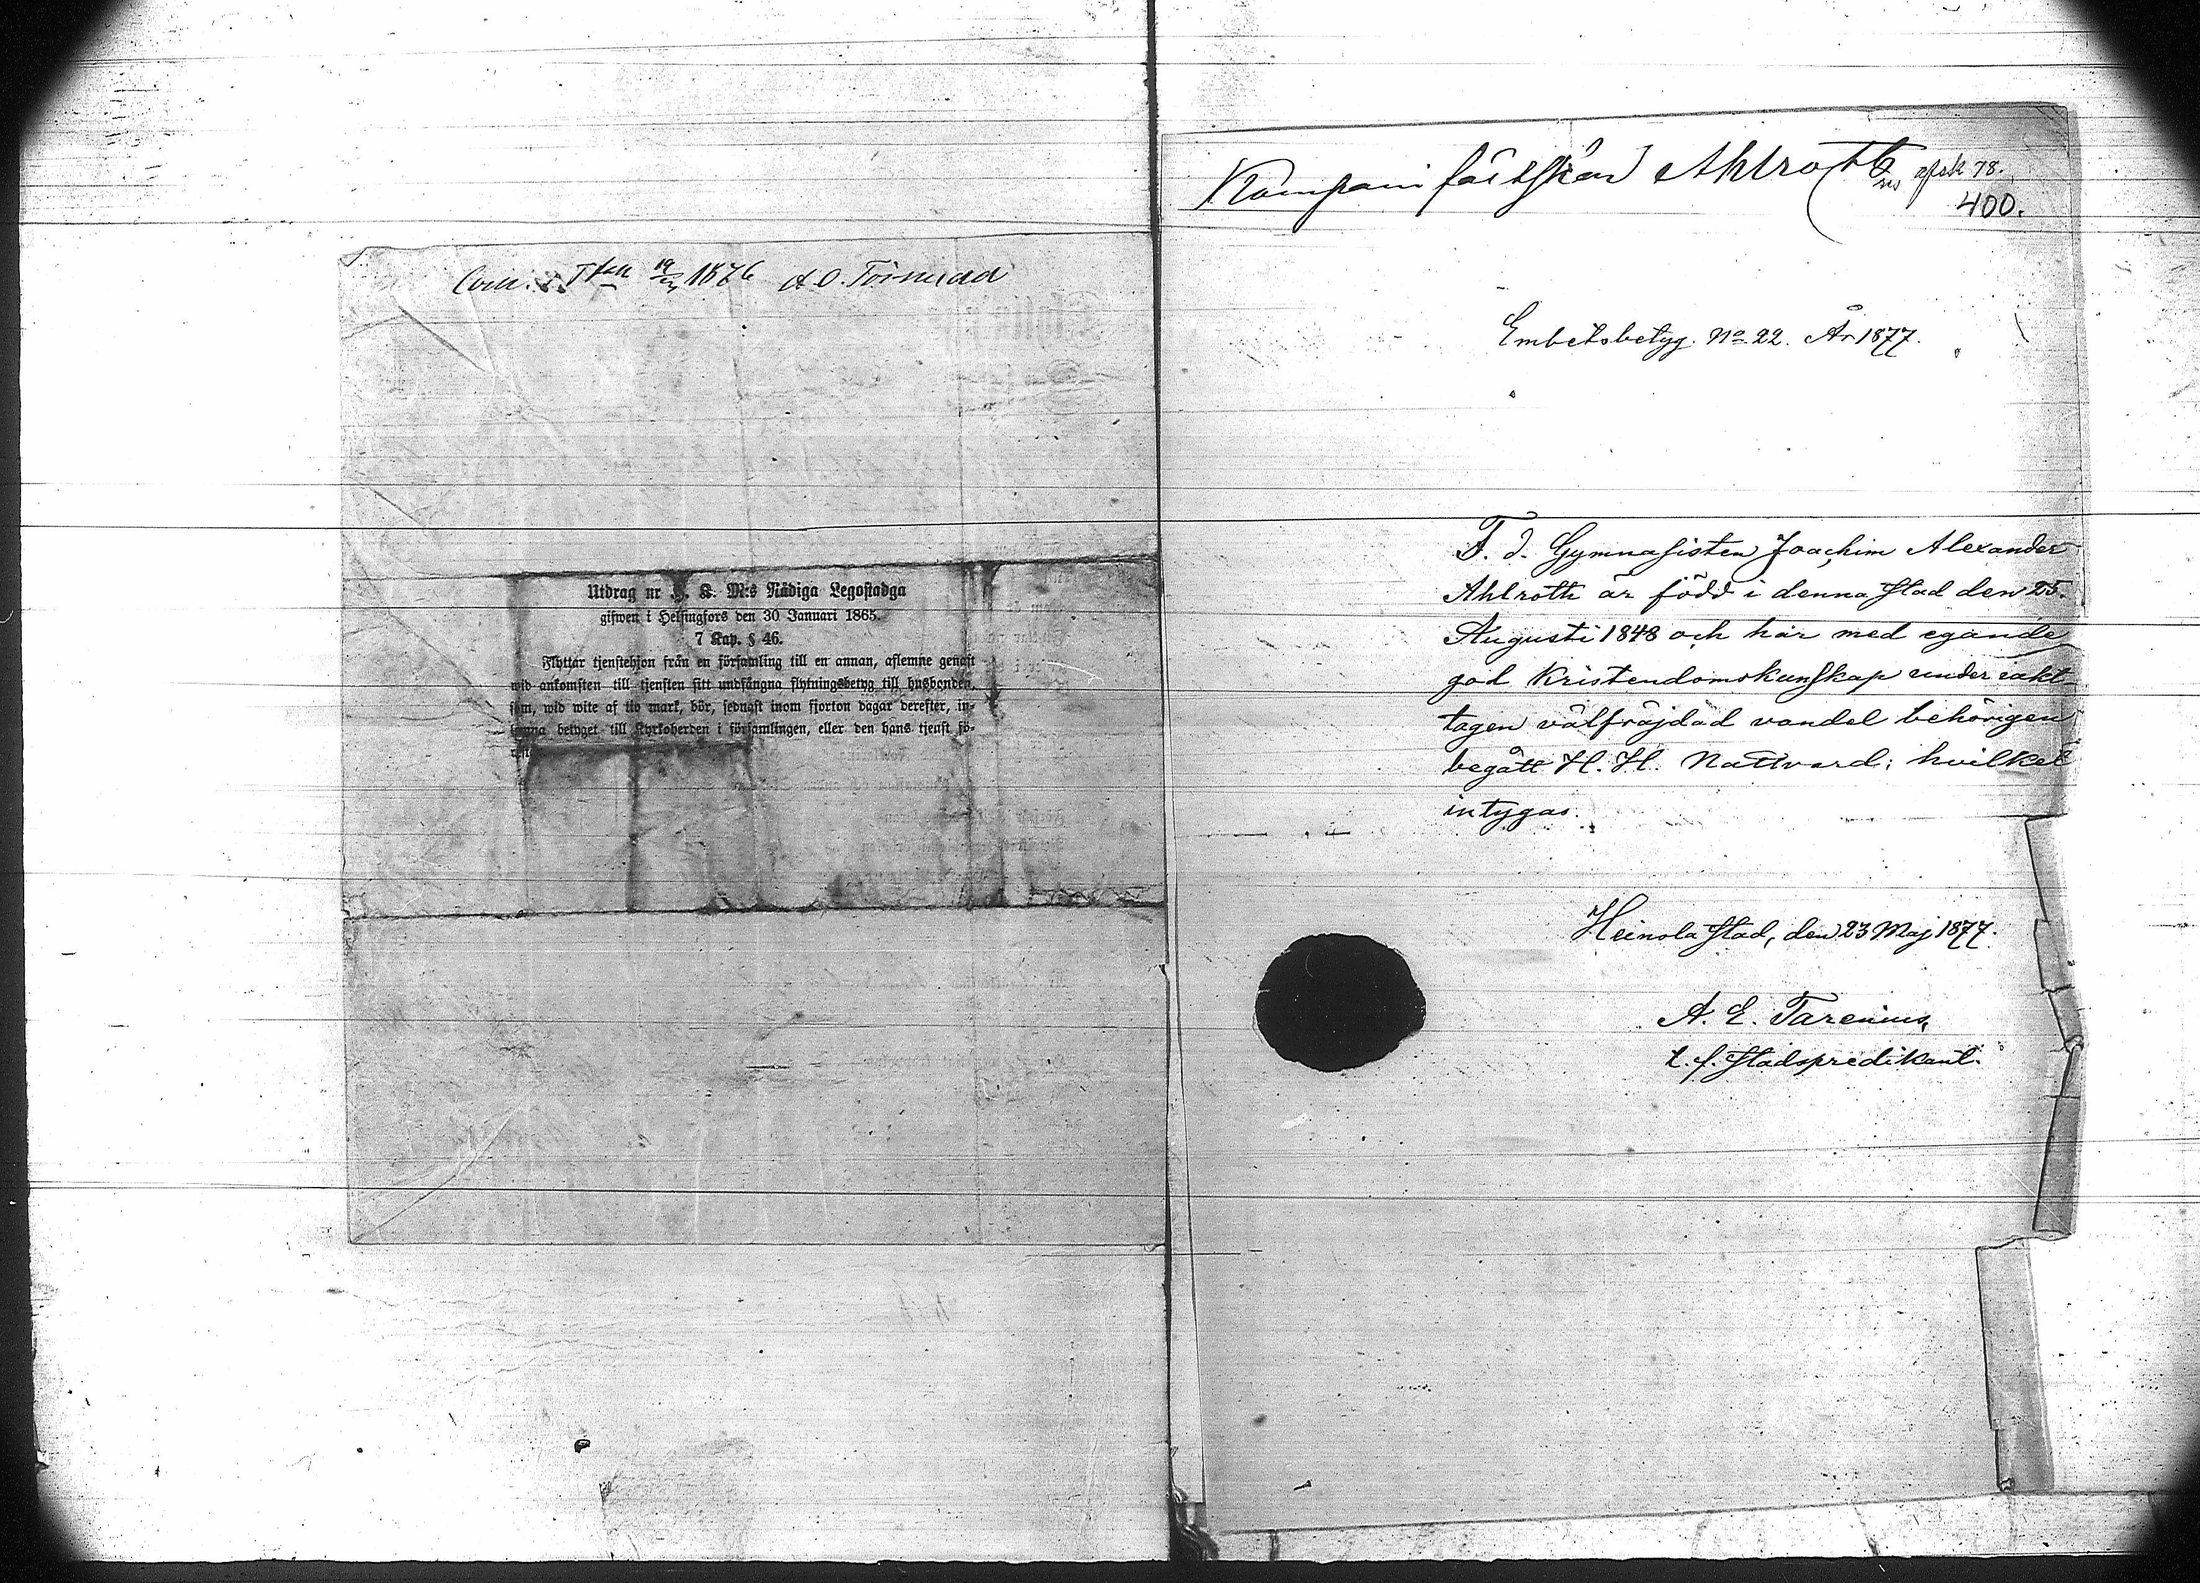 1876 A. O. Törnudd
Utdrag ur H. K. M:s Nådiga Legostadga
gifwen i Helsingfors den 30 Januari 1865.
7 Kap. § 46.
Flyttar tjenstehjon från en församling till en annan, aflemne genast
wid ankomsten till tjensten sitt undfångna flytningsbetyg till husbonden,
som, wid wite af tio mark, bör, sednast inom fjorton dagar derefter, in-
lemna betyget till Kyrkoherden i församlingen, eller den hans tjenst fö-
Kompani fältskär Ahlroth
78.
400.
Embetsbetyg. No 22. År 1877.
F. d. Gymnasisten Joachim Alexander
Ahlroth är född i denna stad den 25.
Augusti 1848 och har med egande
god Kristendomskunskap under iakt-
tagen välfräjdad vandel behörigen
begått H. H. Nattvard; hvilket
intygas.
Heinola stad, den 23 Maj 1877.
A. E. Tarenius,
t. f. stadspredikant.